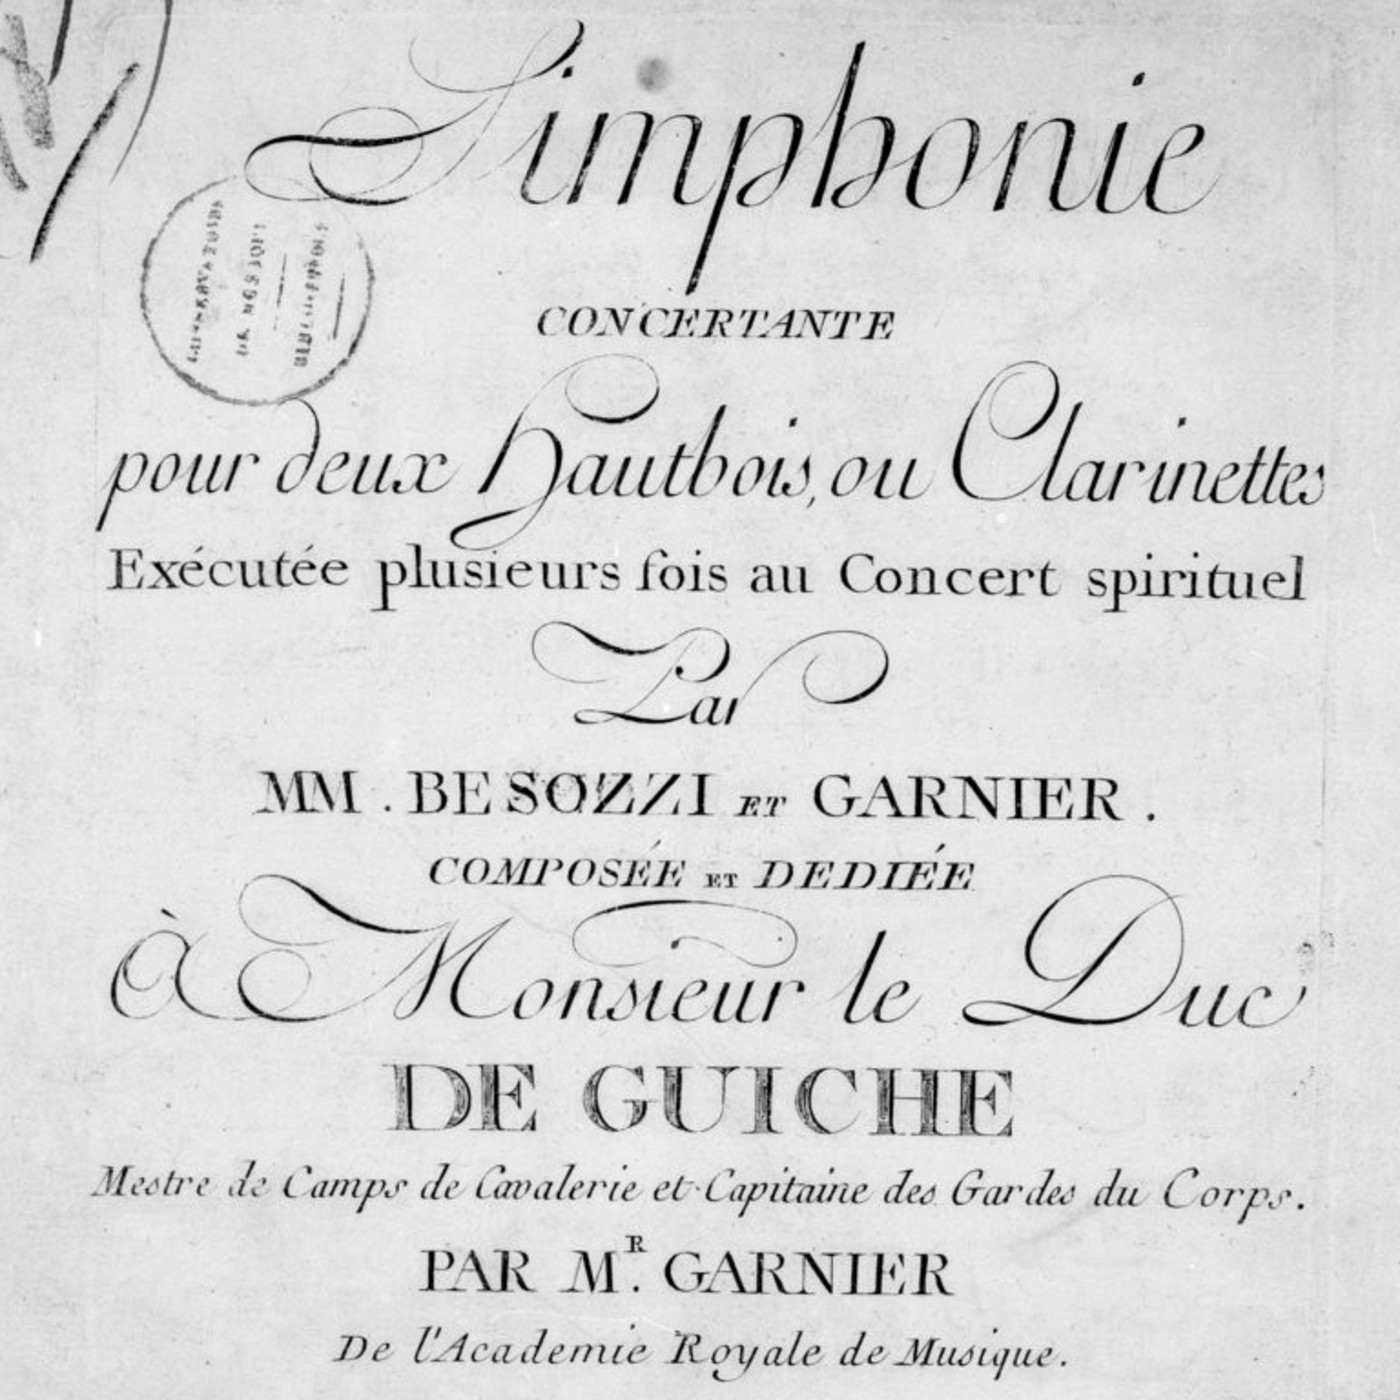 Simphonie
CONSERVATOIRE
DE MUSIQUE
BIBLIOTHÈQUE
CONCERTANTE
pour deux Hautbois, ou Clarinettes
Exécutée plusieurs fois au Concert spirituel
Par
MM. BESOZZI ET GARNIER.
COMPOSÉE ET DEDIÉE
à Monsieur le Duc
DE GUICHE
Mestre de Camps de Cavalerie et Capitaine des Gardes du Corps.
PAR MR. GARNIER
De l'Academie Royale de Musique.